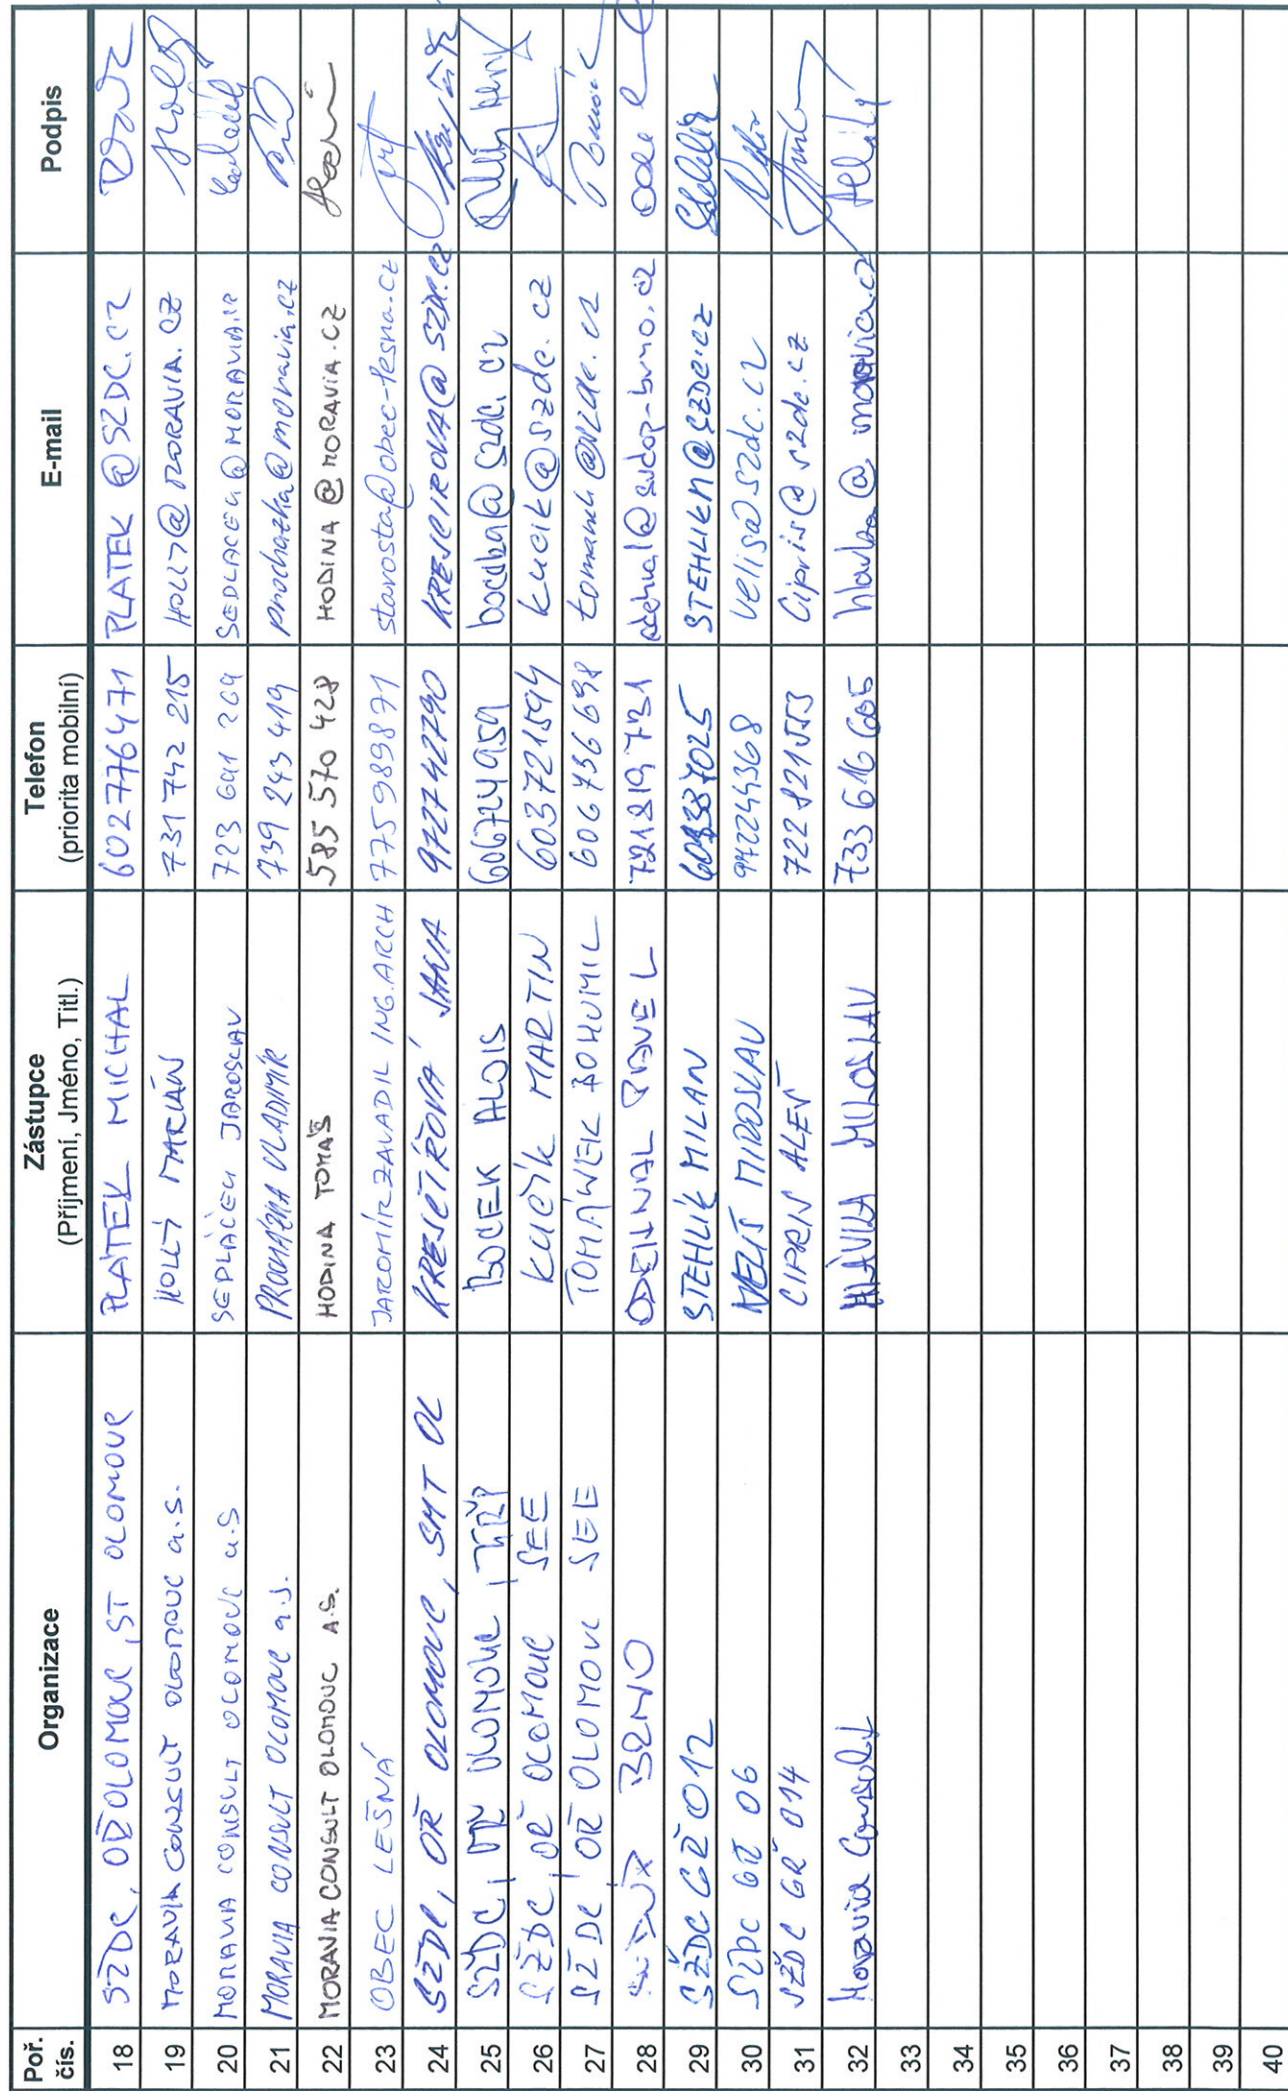 Poř. čís. Organizace Zástupce (Příjmení, Jméno, Titl.) Telefon (priorita mobilní) E-mail Podpis
18 SŽDC, OŘ OLOMOUC, ST OLOMOUC PLATEK MICHAL 602776471 PLATEK@SZDC.CZ
19 MORAVIA CONSULT OLOMOUC a.s. HOLLÝ MARIÁN 731 742 215 HOLLY@MORAVIA.CZ
20 MORAVIA CONSULT OLOMOUC a.s SEDLÁČEK JAROSLAV 723 691 269 SEDLACEK@MORAVIA.CZ
21 MORAVIA CONSULT OLOMOUC a.s. PROCHÁZKA VLADIMÍR 739 243 419 prochazka@moravia.cz
22 MORAVIA CONSULT OLOMOUC A.S. HODINA TOMÁŠ 585 570 428 HODINA@MORAVIA.CZ
23 OBEC LEŠNÁ JAROMÍR ZAVADIL ING.ARCH 775989871 starosta@obec-lesna.cz
24 SŽDC, OŘ OLOMOUC, SMT OL KREJČÍŘOVÁ JANA 972742290 KREJCIROVA@SZDC.CZ
25 SŽDC, OŘ OLOMOUC, BOCEK ALOIS 606724959 @szdc.cz
26 SŽDC, OŘ OLOMOUC SEE KUČÍK MARTIN 603721594 kucik@szdc.cz
27 SŽDC, OŘ OLOMOUC SEE TOMÁNEK BOHUMIL 606736698 tomanek@szdc.cz
28 BRNO ODEHNAL PAVEL 721819731 odehnal@sudop-brno.cz
29 SŽDC GŘ O12 STEHLÍK MILAN STEHLIKM@SZDC.CZ
30 SŽDC GŘ O6 VELIŠ MIROSLAV 972244368 velis@szdc.cz
31 SŽDC GŘ O14 CIPRIS ALEŠ 722821553 Cipris@szdc.cz
32 Moravia Consult HLAVICA MILOSLAV 733 616 605 @moravia.cz
33
34
35
36
37
38
39
40